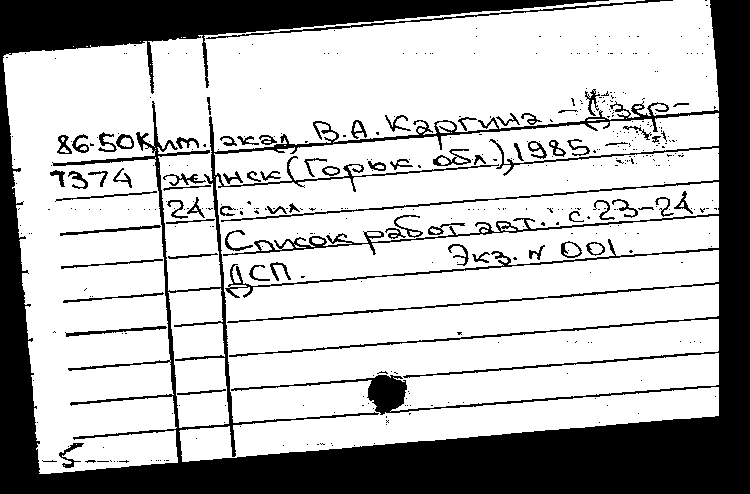 86-50К им. акад. В.А. Каргина. – Дзер-
1374 жинск (Горьк. обл.), 1985. –
24 с.: ил.
Список работ авт.: с. 23-24.
ДСП. Экз. N 001.
5